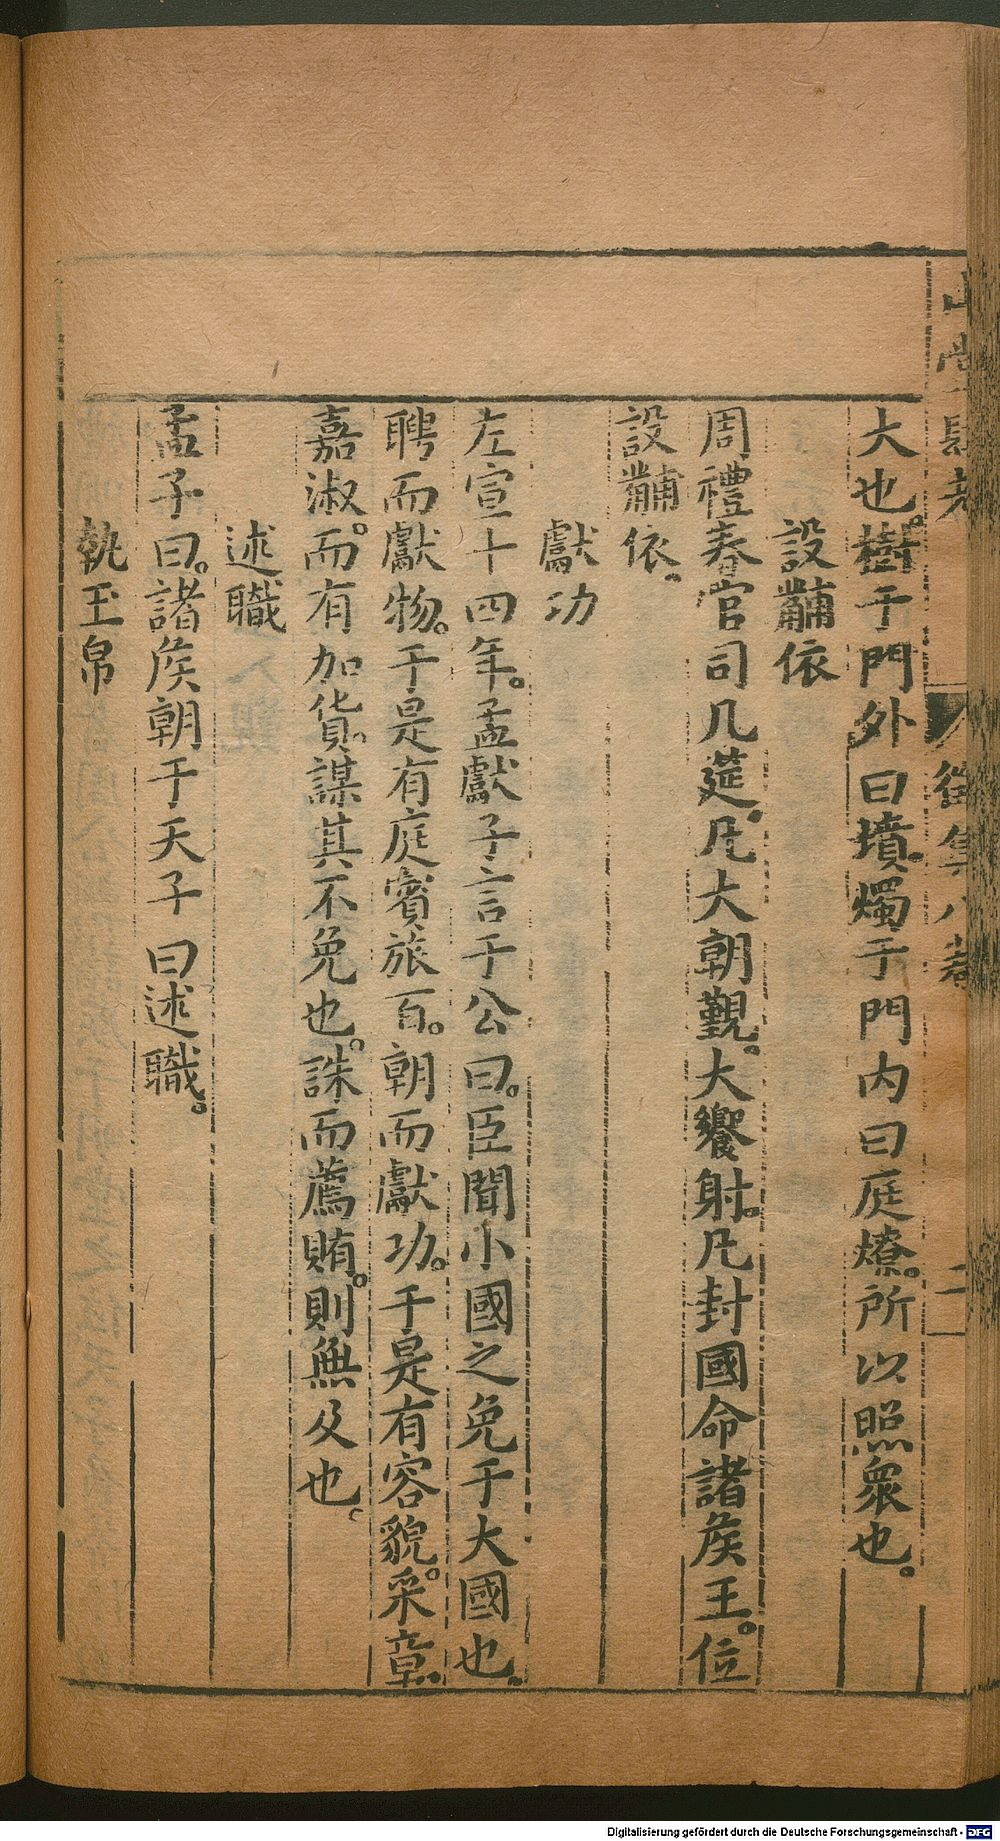 大也。樹于門外曰墳。燭于門内曰庭燎。所以照衆也。
設黼依
周禮春官司几筵。凡大朝覲。大饗射。凡封國命諸矦王。位
設黼依。
獻功
左宣十四年。孟獻子言于公曰。臣聞小國之免于大國也。
聘而獻物。于是有庭賓旅百。朝而獻功。于是有容貌。采章。
嘉淑。而有加貨。謀其不免也。誅而薦賄。則無及也。
述職
孟子曰。諸矦朝于天子曰述職。
執玉帛
Digitalisierung gefördert durch die Deutsche Forschungsgemeinschaft - DFG